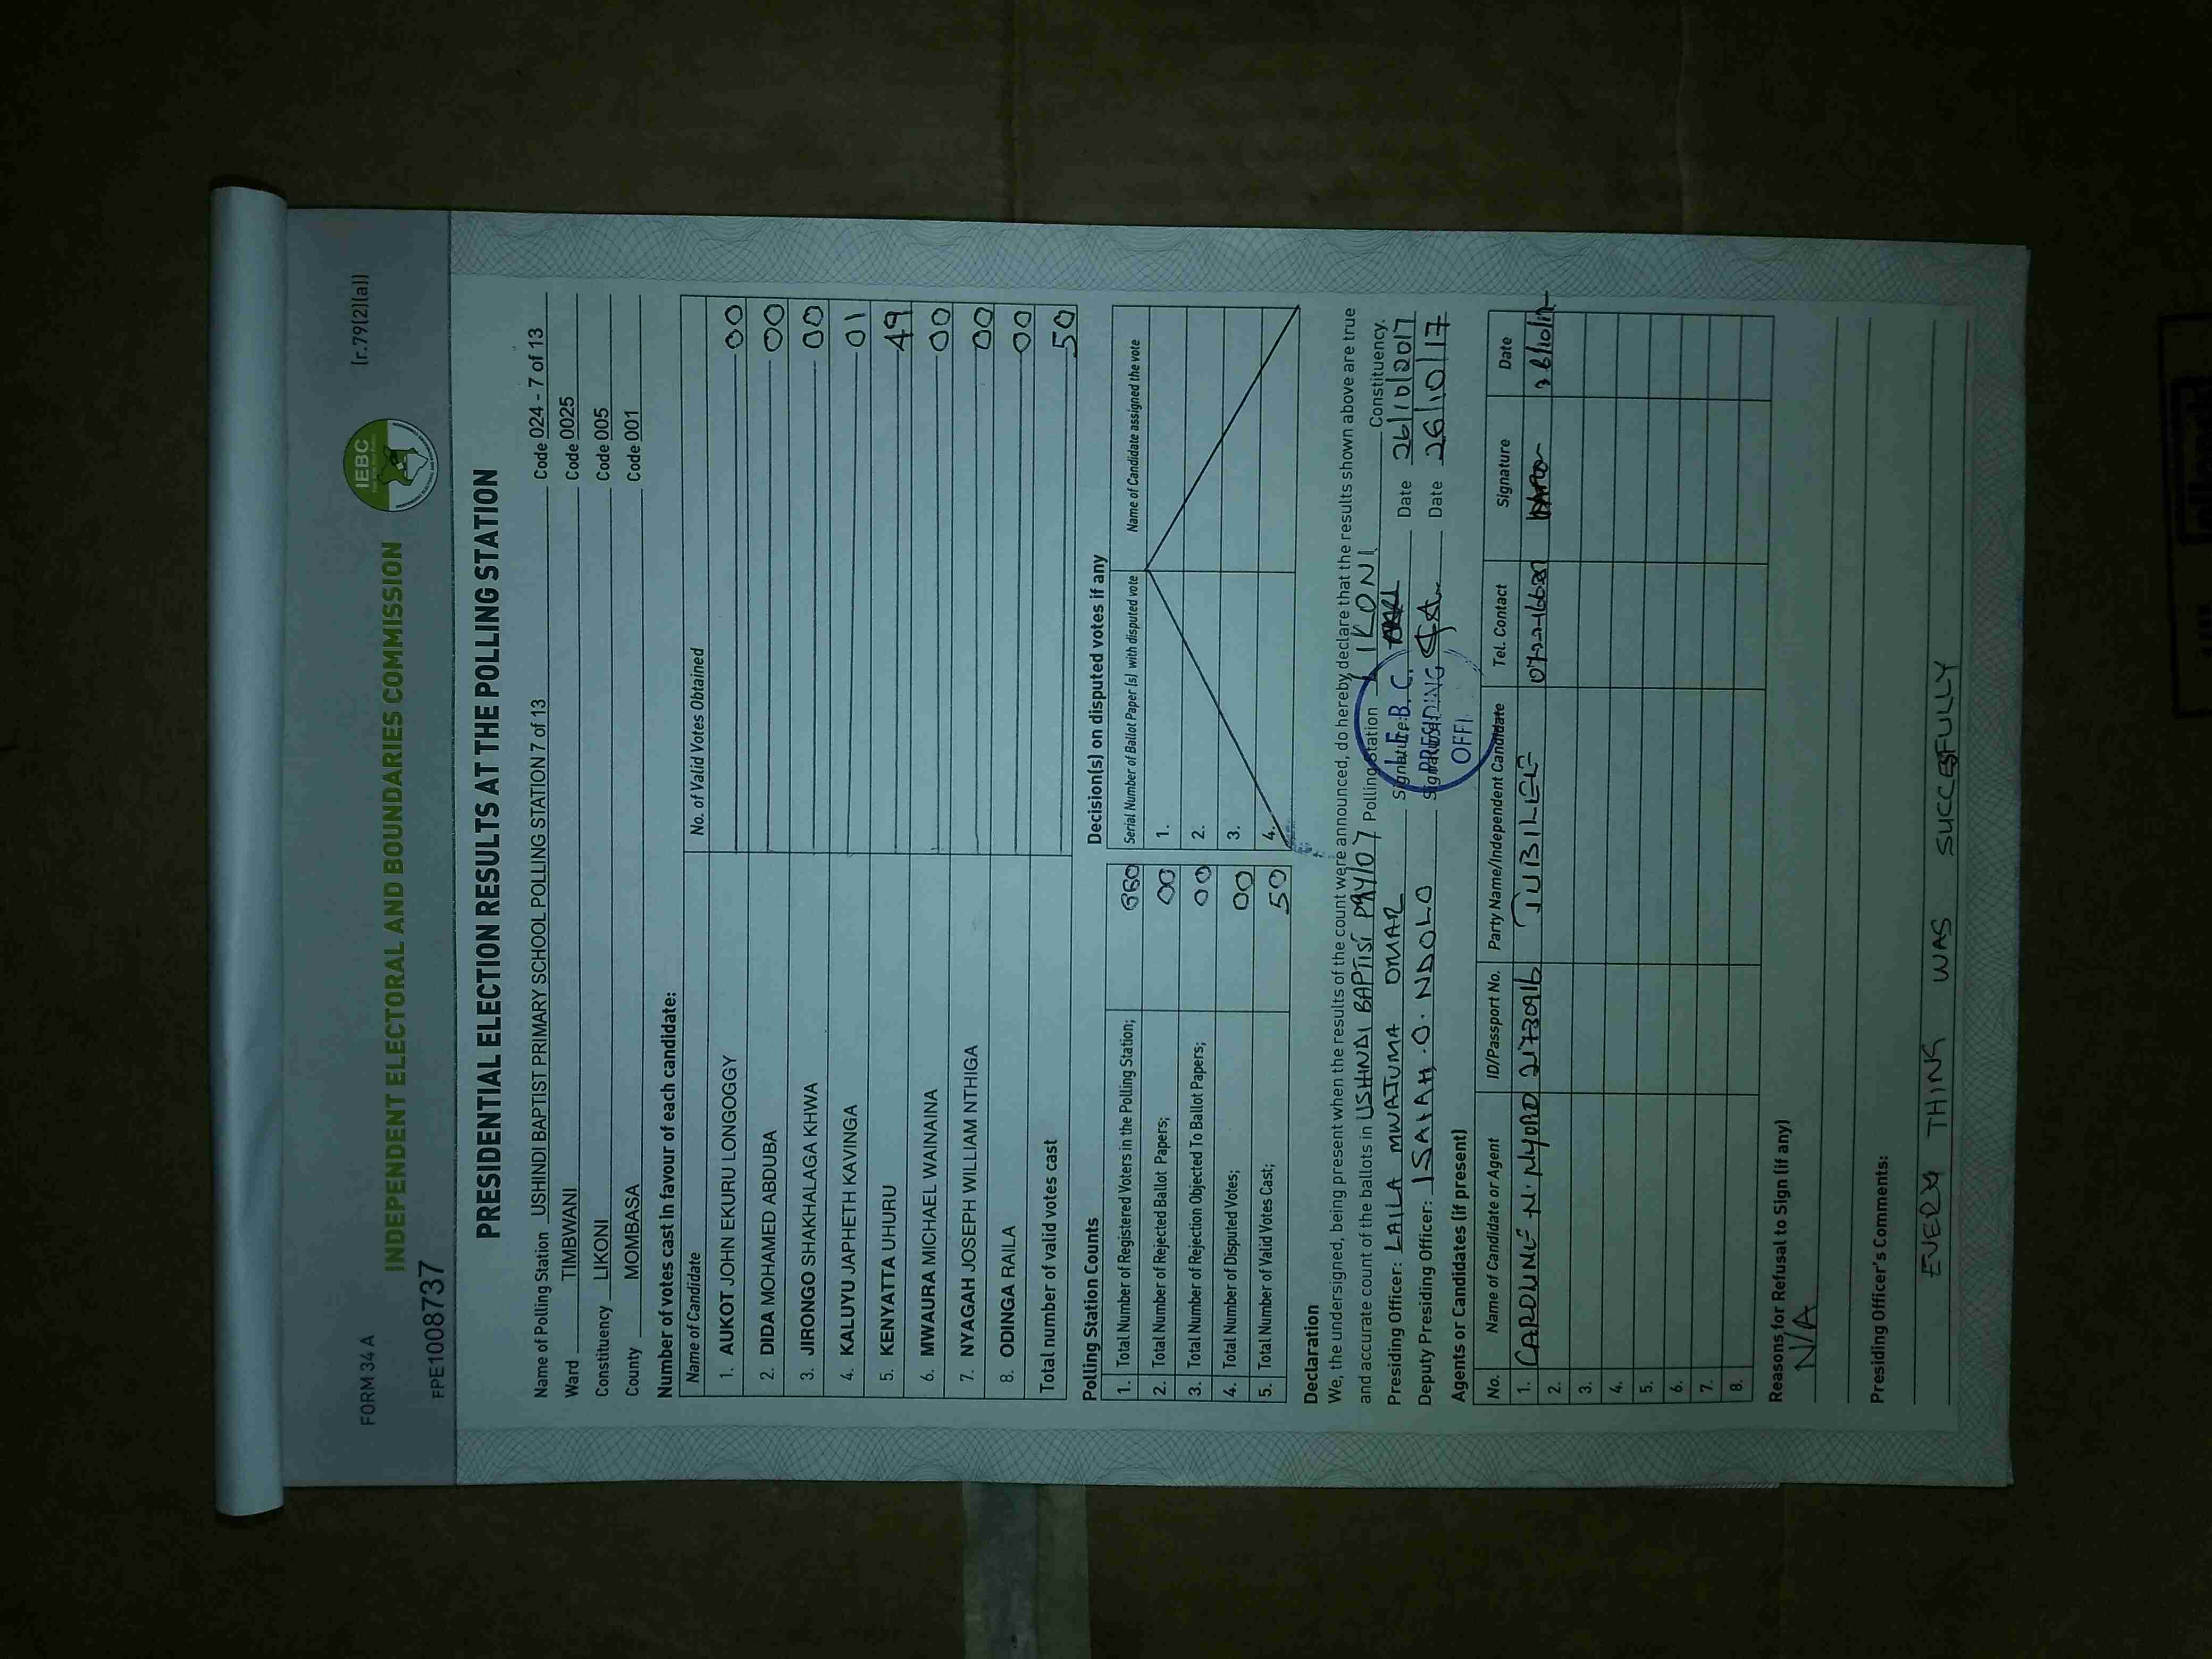 FORM 34 A
[r.79(2)(a)]
IEBC
INDEPENDENT ELECTORAL AND BOUNDARIES COMMISSION
FPE1008737
PRESIDENTIAL ELECTION RESULTS AT THE POLLING STATION
Name of Polling Station USHINDI BAPTIST PRIMARY SCHOOL POLLING STATION 7 of 13 Code 024 - 7 of 13
Ward TIMBWANI Code 0025
Constituency LIKONI Code 005
County MOMBASA Code 001
Number of votes cast in favour of each candidate:
Name of Candidate No. of Valid Votes Obtained
1. AUKOT JOHN EKURU LONGOGGY 00
2. DIDA MOHAMED ABDUBA 00
3. JIRONGO SHAKHALAGA KHWA 00
4. KALUYU JAPHETH KAVINGA 01
5. KENYATTA UHURU 49
6. MWAURA MICHAEL WAINAINA 00
7. NYAGAH JOSEPH WILLIAM NTHIGA 00
8. ODINGA RAILA 00
Total number of valid votes cast 50
Polling Station Counts
1. Total Number of Registered Voters in the Polling Station;
2. Total Number of Rejected Ballot Papers; 00
3. Total Number of Rejection Objected To Ballot Papers; 00
4. Total Number of Disputed Votes; 00
5. Total Number of Valid Votes Cast; 50
Decision(s) on disputed votes if any
Serial Number of Ballot Paper (s) with disputed vote Name of Candidate assigned the vote
1.
2.
3.
4.
Declaration
We, the undersigned, being present when the results of the count were announced, do hereby declare that the results shown above are true
and accurate count of the ballots in USHINDI BAPTIST Polling Station LIKONI Constituency.
Presiding Officer: LAILA MWAJUMA OMAR Signature: Date 26/10/2017
Deputy Presiding Officer: ISAIAH .O. NDOLO Signature: Date 26/10/17
I.E.B.C.
PRESIDING
OFFI
Agents or Candidates (if present)
No. Name of Candidate or Agent ID/Passport No. Party Name/Independent Candidate Tel. Contact Signature Date
1. JUBILEE
2.
3.
4.
5.
6.
7.
8.
Reasons for Refusal to Sign (if any)
N/A
Presiding Officer's Comments:
EVERY THING WAS SUCCESFULLY